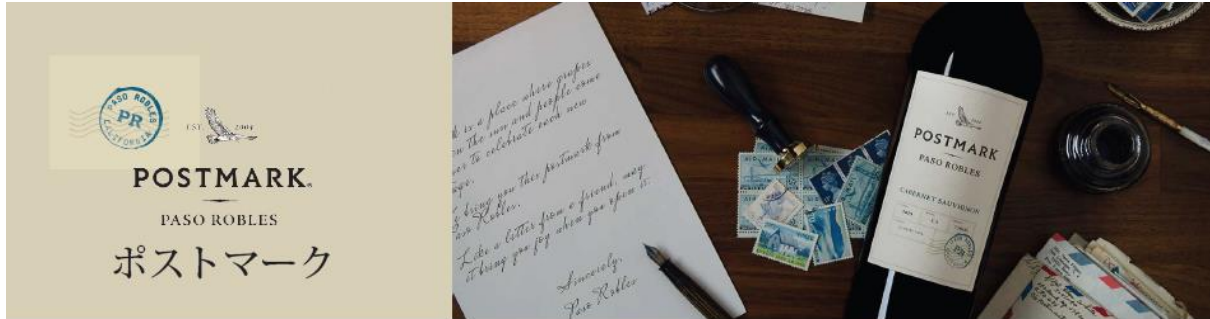 PASO ROBLES
PR
CALIFORNIA
EST. 2004
POSTMARK
PASO ROBLES
ポストマーク
is a place where grapes
the sun and people come
to celebrate each new
bring you this postmark from
Paso Robles.
Like a letter from a friend, may
it bring you joy when you open it.
Sincerely,
Paso Robles
POSTMARK
PASO ROBLES
CABERNET SAUVIGNON
PR